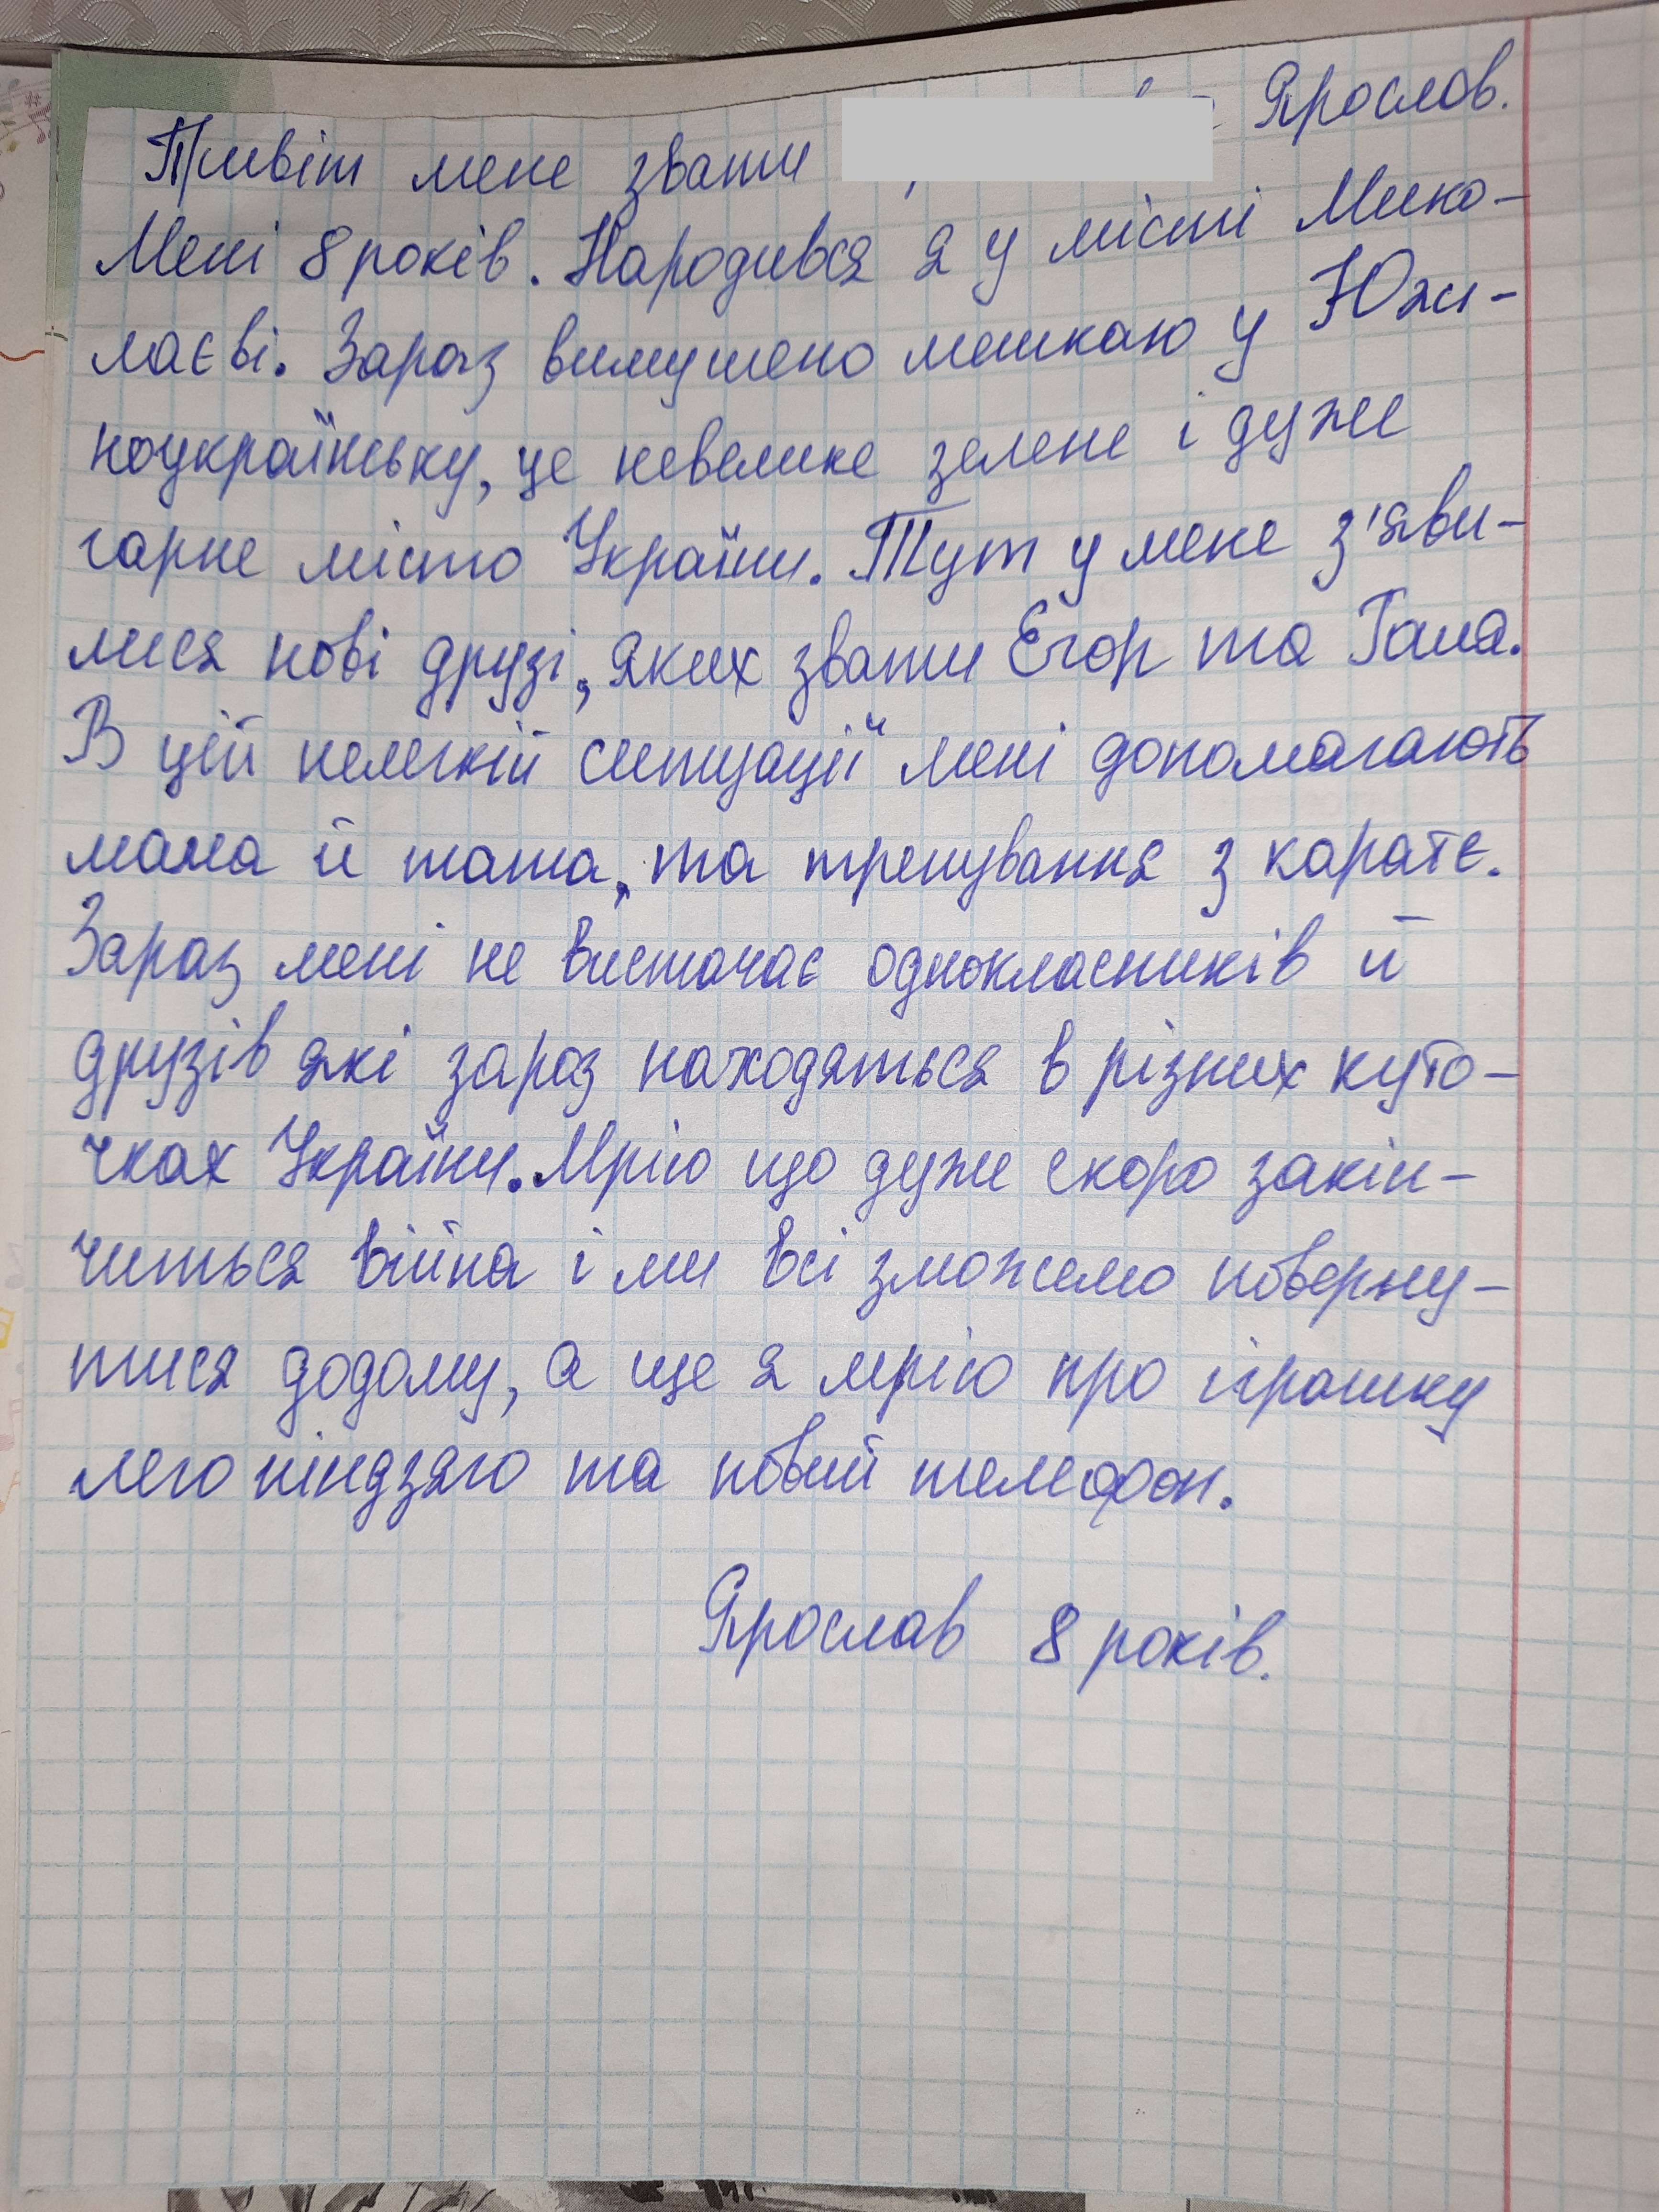 Привіт мене звати Ярослав.
Мені 8 років. Народився я у місті Мико-
лаєві. Зараз вимушено мешкаю у Южн-
ноукраїнську, це невелике зелене і дуже
гарне місто України. Тут у мене з'яви-
лися нові друзі, яких звати Єгор та
В цій нелегкій ситуації мені допомагають
мама й тато, та тренування з карате.
Зараз мені не вистачає однокласників й
друзів які зараз находяться в різних куто-
чках України. Мрію що дуже скоро закін-
читься війна і ми всі зможемо поверну-
тися додому, а ще я мрію про іграшку
лего ніндзяго та новий телефон.
Ярослав 8 років.